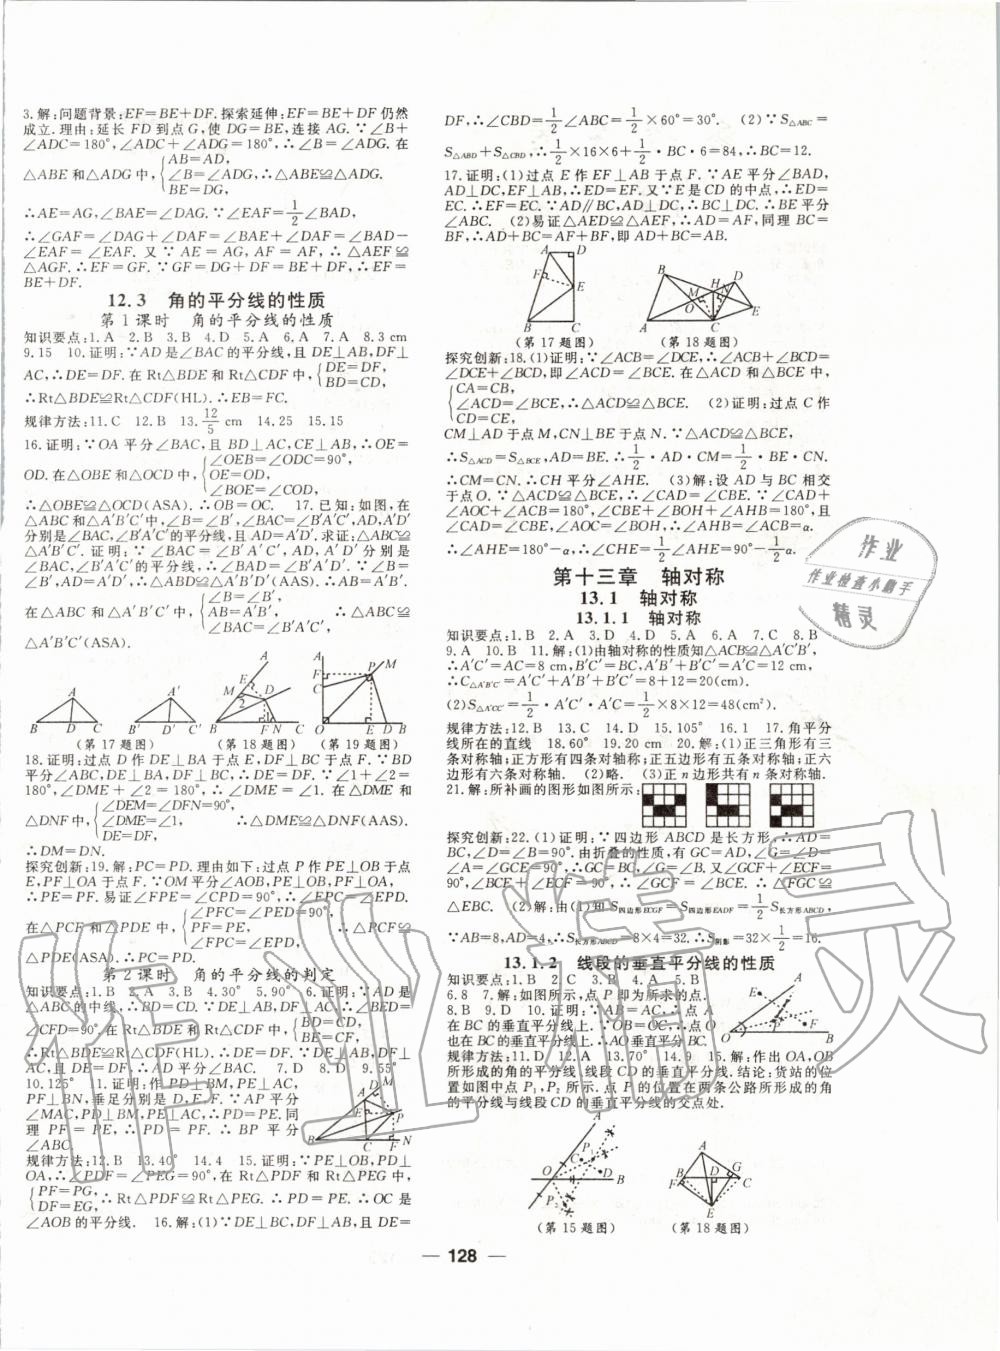 3.解:问题背景:EF=BE+DF.探索延伸:EF=BE+DF仍然
成立.理由:延长FD到点G,使DG=BE,连接AG.∵∠B+
∠ADC=180°,∠ADC+∠ADG=180°,∴∠B=∠ADG.在
△ABE和△ADG中,{AB=AD, ∠B=∠ADG, BE=DG, ∴△ABE≌△ADG.
∴AE=AG,∠BAE=∠DAG.∵∠EAF=1/2∠BAD,
∴∠GAF=∠DAG+∠DAF=∠BAE+∠DAF=∠BAD-
∠EAF=∠EAF.又∵AE=AG,AF=AF,∴△AEF≌
△AGF.∴EF=GF.∵GF=DG+DF=BE+DF,∴EF=
BE+DF.
12.3 角的平分线的性质
第1课时 角的平分线的性质
知识要点:1.A 2.B 3.B 4.D 5.A 6.A 7.A 8.3 cm
9.15 10.证明:∵AD是∠BAC的平分线,且DE⊥AB,DF⊥
AC,∴DE=DF.在Rt△BDE和Rt△CDF中,{DE=DF, BD=CD,
∴Rt△BDE≌Rt△CDF(HL).∴EB=FC.
规律方法:11.C 12.B 13.12/5 cm 14.25 15.15
16.证明:∵OA平分∠BAC,且BD⊥AC,CE⊥AB,∴OE=
OD.在△OBE和△OCD中,{∠OEB=∠ODC=90°, OE=OD, ∠BOE=∠COD,
∴△OBE≌△OCD(ASA).∴OB=OC. 17.已知:如图,在
△ABC和△A′B′C′中,∠B=∠B′,∠BAC=∠B′A′C′,AD,A′D′
分别是∠BAC,∠B′A′C′的平分线,且AD=A′D′.求证:△ABC≌
△A′B′C′.证明:∵∠BAC=∠B′A′C′,AD,A′D′分别是
∠BAC,∠B′A′C′的平分线,∴∠BAD=∠B′A′D′.∵∠B=
∠B′,AD=A′D′,∴△ABD≌△A′B′D′(AAS).∴AB=A′B′.
在△ABC和△A′B′C′中,{∠B=∠B′, AB=A′B′, ∠BAC=∠B′A′C′, ∴△ABC≌
△A′B′C′(ASA).
(第17题图) (第18题图) (第19题图)
18.证明:过点D作DE⊥BA于点E,DF⊥BC于点F.∵BD
平分∠ABC,DE⊥BA,DF⊥BC,∴DE=DF.∵∠1+∠2=
180°,∠DME+∠2=180°,∴∠DME=∠1.在△DME和
△DNF中,{∠DEM=∠DFN=90°, ∠DME=∠1, DE=DF, ∴△DME≌△DNF(AAS).
∴DM=DN.
探究创新:19.解:PC=PD.理由如下:过点P作PE⊥OB于点
E,PF⊥OA于点F.∵OM平分∠AOB,PE⊥OB,PF⊥OA,
∴PE=PF.易证∠FPE=∠CPD=90°,∴∠FPC=∠EPD.
在△PCF和△PDE中,{∠PFC=∠PED=90°, PF=PE, ∠FPC=∠EPD, ∴△PCF≌
△PDE(ASA).∴PC=PD.
第2课时 角的平分线的判定
知识要点:1.B 2.A 3.B 4.30° 5.90° 6.证明:∵AD是
△ABC的中线,∴BD=CD.∵DE⊥AB,DF⊥AC,∴∠BED=
∠CFD=90°.在Rt△BDE和Rt△CDF中,{BD=CD, BE=CF,
∴Rt△BDE≌Rt△CDF(HL).∴DE=DF.∵DE⊥AB,DF⊥
AC,且DE=DF,∴AD平分∠BAC. 7.D 8.D 9.55°
10.125° 11.证明:作PD⊥BM,PE⊥AC,
PF⊥BN,垂足分别是D,E,F.∵AP平分
∠MAC,PD⊥BM,PE⊥AC,∴PD=PE.同
理PF=PE,∴PD=PF.∴BP平分
∠ABC.
规律方法:12.B 13.40° 14.4 15.证明:∵PE⊥OB,PD⊥
OA,∴∠PDF=∠PEG=90°,在Rt△PDF和Rt△PEG中,
{PF=PG, DF=EG, ∴Rt△PDF≌Rt△PEG.∴PD=PE.∴OC是
∠AOB的平分线. 16.解:(1)∵DE⊥BC,DF⊥AB,且DE=
DF,∴∠CBD=1/2∠ABC=1/2×60°=30°. (2)∵S△ABC=
S△ABD+S△CBD,∴1/2×16×6+1/2·BC·6=84,∴BC=12.
17.证明:(1)过点E作EF⊥AB于点F.∵AE平分∠BAD,
AD⊥DC,EF⊥AB,∴ED=EF.又∵E是CD的中点,∴ED=
EC.∴EF=EC.∵AD∥BC,AD⊥DC,∴BC⊥DC.∴BE平分
∠ABC. (2)易证△AED≌△AEF,∴AD=AF,同理BC=
BF,∴AD+BC=AF+BF,即AD+BC=AB.
(第17题图) (第18题图)
探究创新:18.(1)证明:∵∠ACB=∠DCE,∴∠ACB+∠BCD=
∠DCE+∠BCD,即∠ACD=∠BCE.在△ACD和△BCE中,
{CA=CB, ∠ACD=∠BCE, CD=CE, ∴△ACD≌△BCE. (2)证明:过点C作
CM⊥AD于点M,CN⊥BE于点N.∵△ACD≌△BCE,
∴S△ACD=S△BCE,AD=BE.∴1/2·AD·CM=1/2·BE·CN.
∴CM=CN.∴CH平分∠AHE. (3)解:设AD与BC相交
于点O.∵△ACD≌△BCE,∴∠CAD=∠CBE.∵∠CAD+
∠AOC+∠ACB=180°,∠CBE+∠BOH+∠AHB=180°,且
∠CAD=∠CBE,∠AOC=∠BOH,∴∠AHB=∠ACB=α.
∴∠AHE=180°-α,∴∠CHE=1/2∠AHE=90°-1/2α.
第十三章 轴对称
13.1 轴对称
13.1.1 轴对称
知识要点:1.B 2.A 3.D 4.D 5.A 6.A 7.C 8.B
9.A 10.B 11.解:(1)由轴对称的性质知△ACB≌△A′C′B′,
∴A′C′=AC=8 cm,B′C′=BC,A′B′+B′C′=AB+BC=12 cm,
∴C△A′B′C′=A′C′+A′B′+B′C′=8+12=20(cm).
(2)S△A′CC′=1/2·A′C′·A′C=1/2×8×12=48(cm²).
规律方法:12.B 13.C 14.D 15.105° 16.1 17.角平分
线所在的直线 18.60° 19.20 cm 20.解:(1)正三角形有三
条对称轴;正方形有四条对称轴;正五边形有五条对称轴;正六
边形有六条对称轴. (2)略. (3)正n边形共有n条对称轴.
21.解:所补画的图形如图所示:
探究创新:22.(1)证明:∵四边形ABCD是长方形,∴AD=
BC,∠D=∠B=90°.由折叠的性质,有GC=AD,∠G=∠D,
∠A=∠GCE=90°,∴GC=BC,∠G=∠B.又∠GCF+∠ECF=
90°,∠BCE+∠ECF=90°,∴∠GCF=∠BCE.∴△FGC≌
△EBC. (2)解:由(1)知S四边形ECGF=S四边形EADF=1/2S长方形ABCD,
∵AB=8,AD=4,∴S长方形ABCD=8×4=32.∴S阴影=1/2×32=16.
13.1.2 线段的垂直平分线的性质
知识要点:1.B 2.C 3.B 4.A 5.B
6.8 7.解:如图所示,点P即为所求的点.
8.B 9.D 10.证明:∵AB=AC,∴点A
在BC的垂直平分线上.∵OB=OC,∴点O
也在BC的垂直平分线上.∴AO垂直平分BC.
规律方法:11.D 12.A 13.70° 14.9 15.解:作出OA,OB
所形成的角的平分线,线段CD的垂直平分线.结论:货站的位
置如图中点P₁,P₂所示.点P的位置在两条公路所形成的角
的平分线与线段CD的垂直平分线的交点处.
(第15题图) (第18题图)
— 128 —
作业
作业检查小助手
精灵
作业精灵